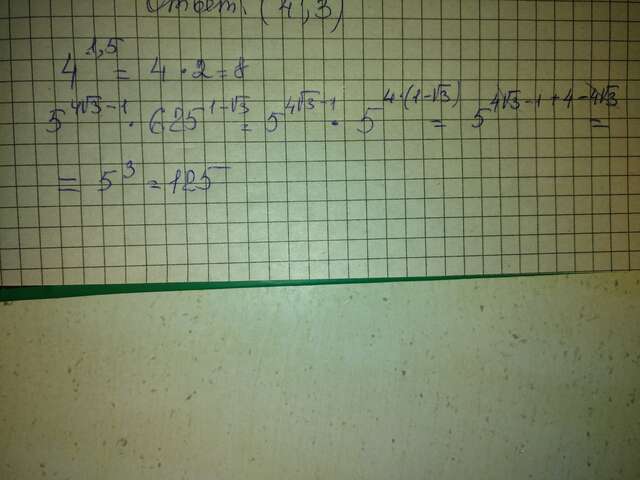 Ответ: (4; 3)
4^{1,5} = 4 · 2 = 8
5^{4√3-1} · 625^{1-√3} = 5^{4√3-1} · 5^{4·(1-√3)} = 5^{4√3-1+4-4√3} =
= 5^3 = 125